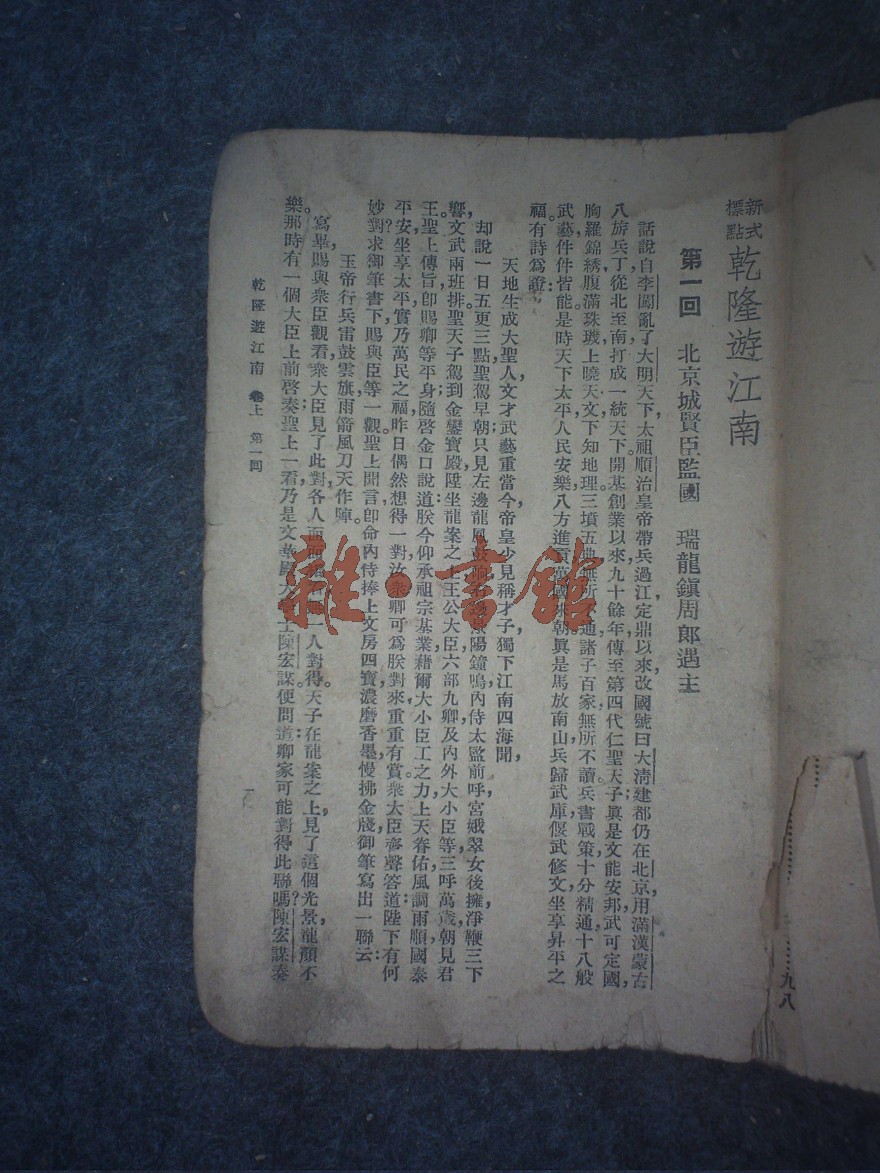 新式標點 乾隆遊江南
第一回 北京城賢臣監國 瑞龍鎮周郎遇主
話說自李闖亂了大明天下,太祖順治皇帝帶兵過江定鼎以來,改國號曰大淸,建都仍在北京,用滿漢蒙古
八旂兵丁,從北至南,打成一統天下。開基創業以來,九十餘年,傳至第四代仁聖天子,眞是文能安邦,武可定國,
胸羅錦綉,腹滿珠璣,上曉天文,下知地理,三墳五典,無所不通,諸子百家,無所不讀,兵書戰策,十分精通,十八般
武藝,件件皆能。是時天下太平,人民安樂,八方進貢,萬國來朝,眞是馬放南山,兵歸武庫,偃武修文,坐享昇平之
福。有詩爲證:
天地生成大聖人,文才武藝重當今,帝皇少見稱才子,獨下江南四海聞,
却說一日五更三點,聖駕早朝,只見左邊龍鳳鼓响,右邊景陽鐘鳴,內侍太監前呼,宮娥翠女後擁,淨鞭三下
響,文武兩班排,聖天子駕到金鑾寶殿,陞坐龍案之上,王公大臣,六部九卿,及內外大小臣等,三呼萬歲,朝見君
王。聖上傳旨,卽賜卿等平身,隨啓金口說道:朕今仰承祖宗基業,藉爾大小臣工之力,上天眷佑,風調雨順,國泰
平安,坐享太平,實乃萬民之福,昨日偶然想得一對,汝衆卿可爲朕對來,重重有賞。衆大臣齊聲答道:陛下有何
妙對?求御筆書下,賜與臣等一觀。聖上聞言,卽命內侍捧上文房四寶,濃磨香墨,慢拂金牋,御筆寫出一聯云:
玉帝行兵,雷鼓雲旗,雨箭風刀天作陣。
寫畢,賜與衆臣觀看,衆大臣見了此對,各人面面相一人對得。天子在龍案之上,見了這個光景,龍顏不
樂。那時有一個大臣上前啓奏,聖上一看,乃是文華殿大士陳宏謀,便問道:卿家可能對得此聯嗎?陳宏謀奏
乾隆遊江南 卷上 第一回
一
九八